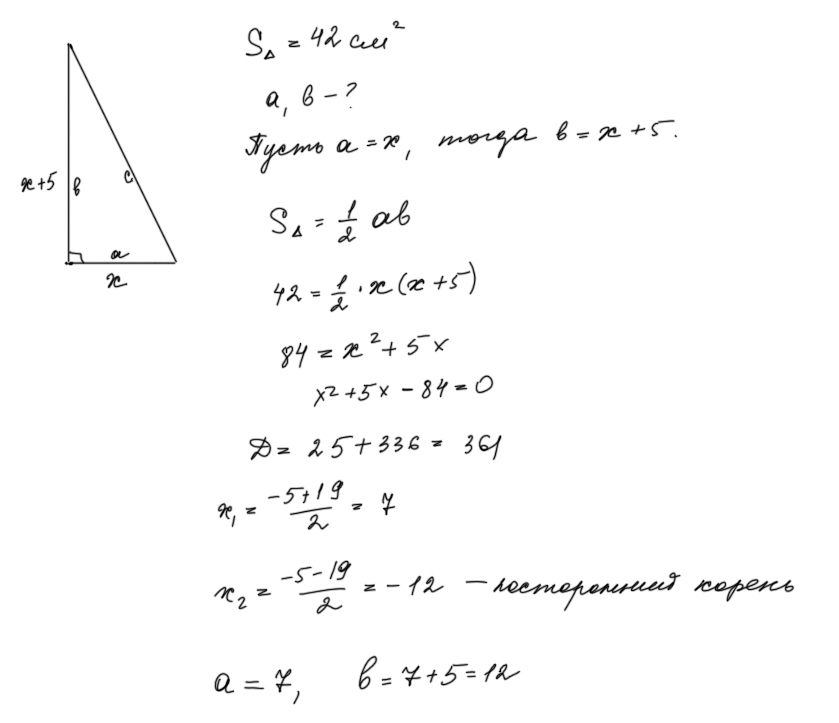 S△ = 42 см²
a, b - ?
Пусть a = x, тогда b = x + 5.
x+5
b
c
a
x
S△ = 1/2 ab
42 = 1/2 · x (x + 5)
84 = x² + 5x
x² + 5x - 84 = 0
D = 25 + 336 = 361
x₁ = (-5+19)/2 = 7
x₂ = (-5-19)/2 = -12 — посторонний корень
a = 7, b = 7 + 5 = 12